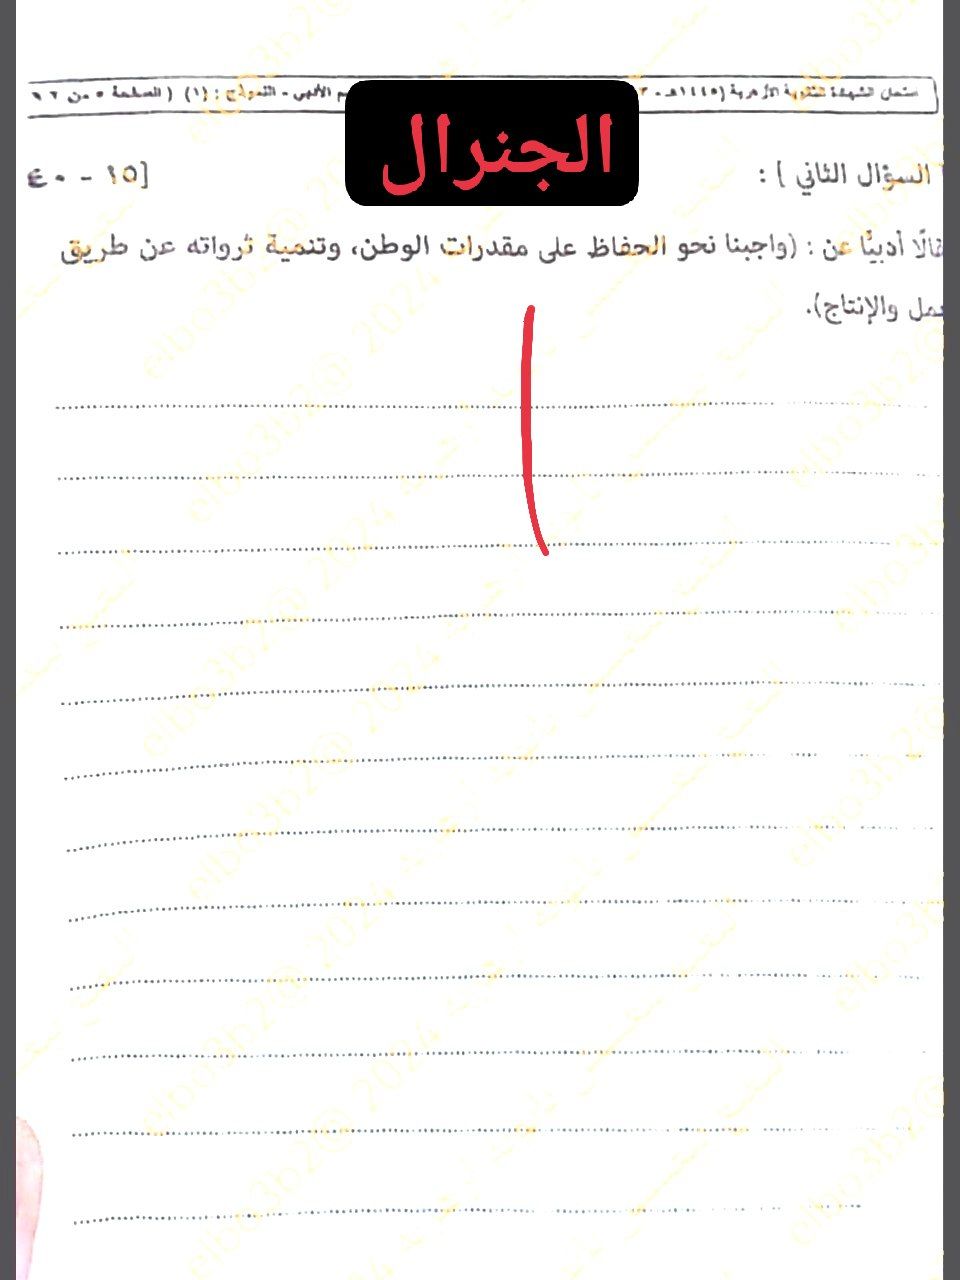 امتحان الشهادة الثانوية الأزهرية (١٤٤٥هـ - ٣
م الأدبي - النموذج : (١) ( الصفحة
الجنرال
السؤال الثاني ] :
[١٥ - ٤٠
أدبيًا عن : (واجبنا نحو الحفاظ على مقدرات الوطن، وتنمية ثرواته عن طريق
والإنتاج).
elbo3b2@ 2024